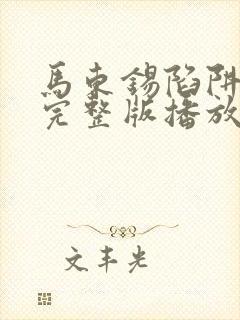 馬东锡陷阱
完整版播放
文丰光